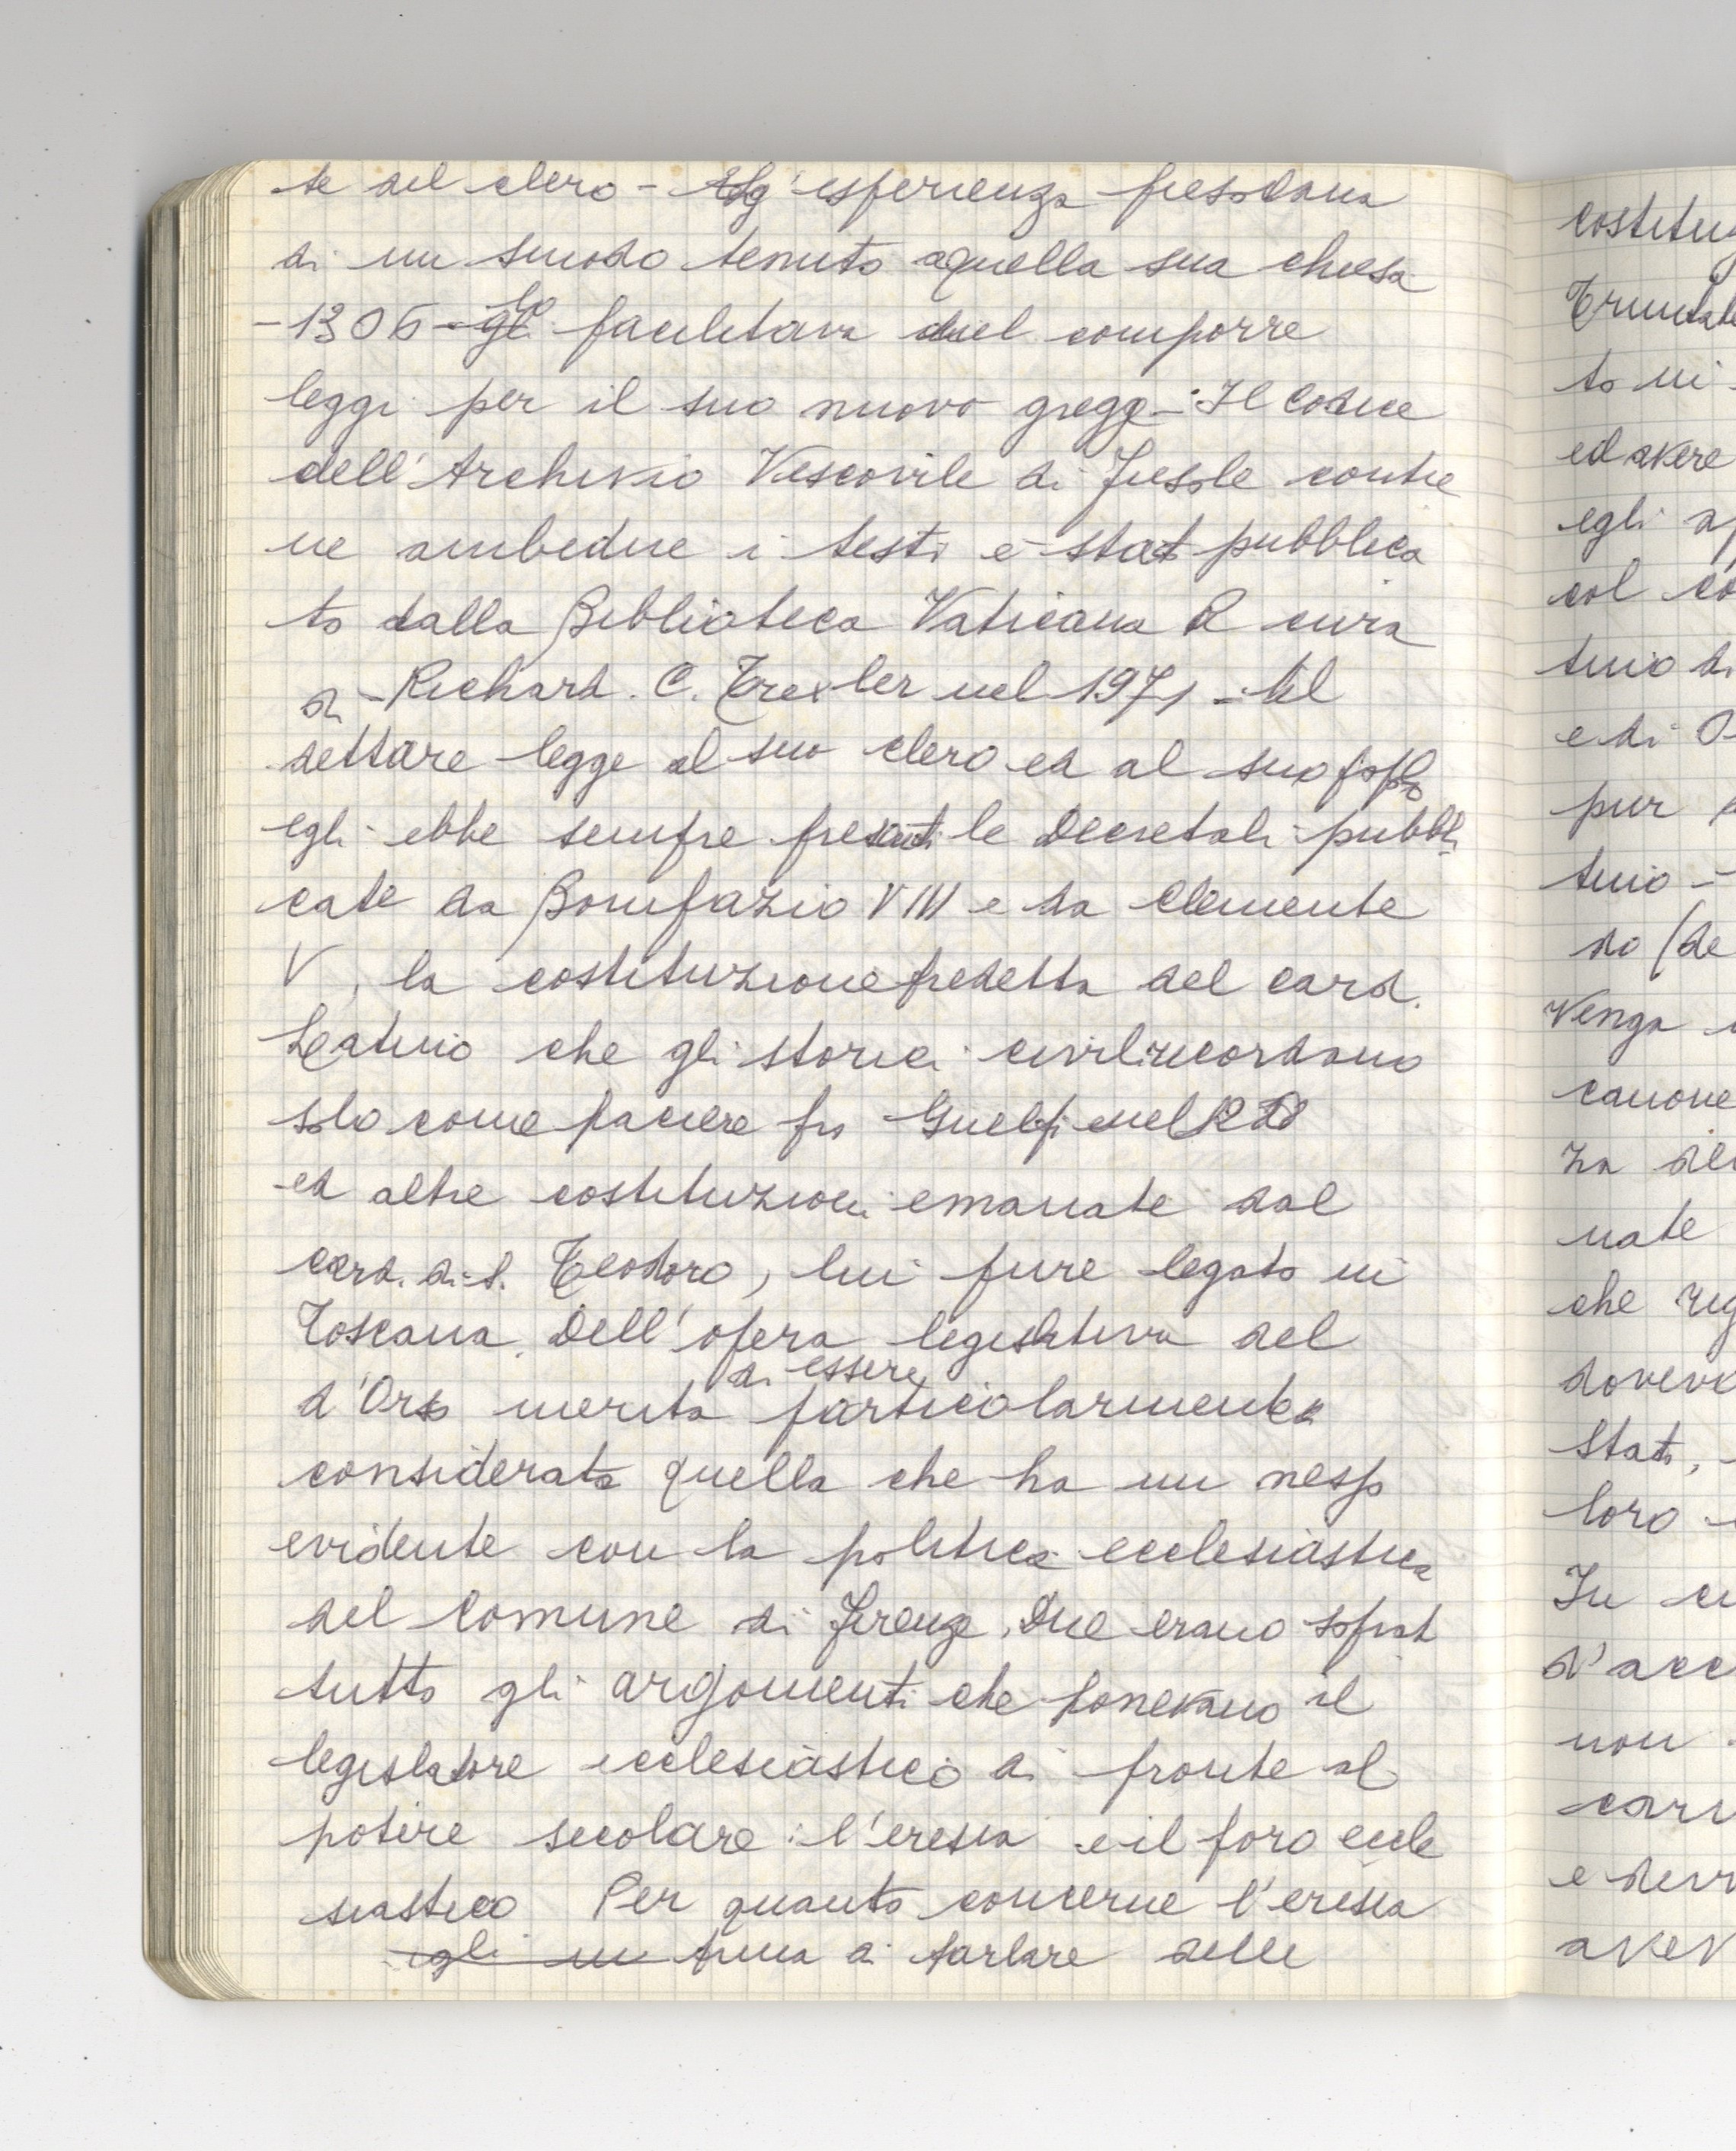 te del clero - L'esperienza fiesolana
di un sinodo tenuto a quella sua chiesa
- 1306 - lo facilitava nel comporre
leggi per il suo nuovo gregge - Il Codice
dell'Archivio Vescovile di Fiesole contie
ne ambedue i testi è stato pubblica
to dalla Biblioteca Vaticana a cura
di - Richard. C. Trexler nel 1971 - Nel
dettare legge al suo clero ed al suo popolo
egli ebbe sempre presenti le Decretali pubbli
cate da Bonifazio VIII e da Clemente
V, la costituzione predetta del card.
Latino che gli storici civili ricordano
solo come paciere fra Guelfi nel
ed altre costituzioni emanate dal
card. di S. Teodoro, lui pure legato in
Toscana. Dell'opera legislativa del
d'Orso merita di essere particolarmente
considerata quella che ha un nesso
evidente con la politica ecclesiastica
del Comune di Firenze. Due erano soprat
tutto gli argomenti che ponevano il
legislatore ecclesiastico di fronte al
potere secolare: l'eresia e il foro eccle
siastico Per quanto concerne l'eresia
egli in prima di parlare delle
costituz
to in
ed avere
egli ap
col co
tino di
e di O
pur
tino -
do (de
Venga
canone
za del
nate
che rig
doveva
Stati,
loro
In cu
d'acc
non
cari
e
avev